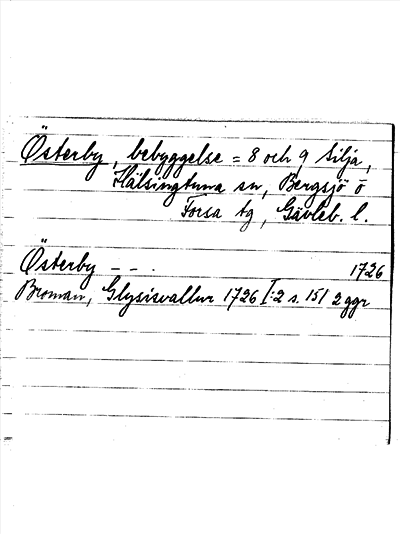 Österby, bebyggelse = 8 och 9 Silja,
Hälsingtuna sn, Bergsjö o
Forsa tg, Gävleb. l.
Österby - - . 1726
Broman, Glysisvallur 1726 I:2 s. 151 2 ggr